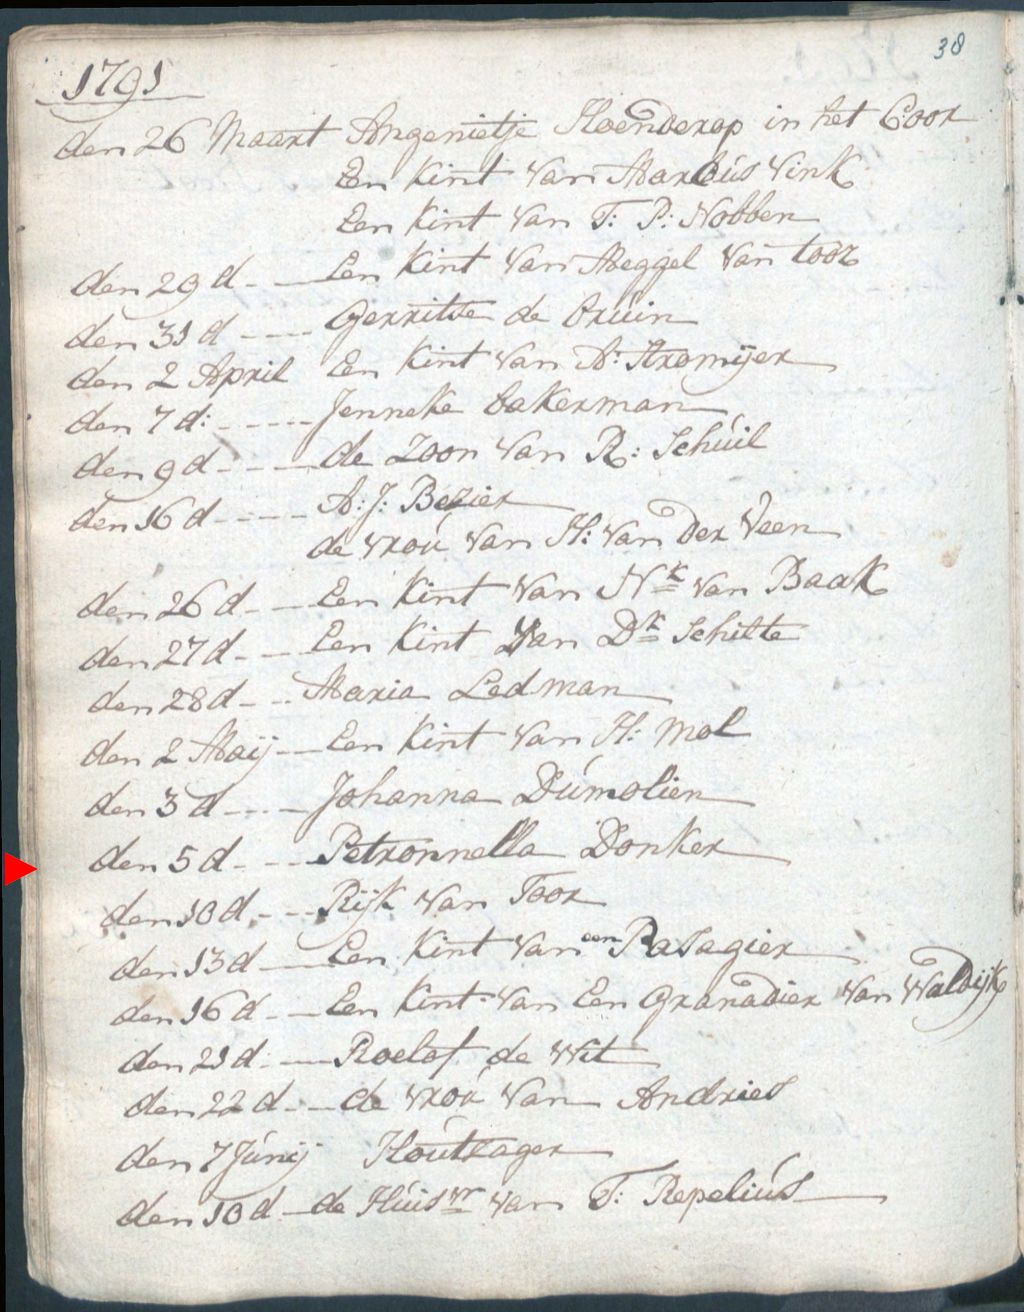 38
1791
den 26 Maart Angenietje Hoenderop in het Coor
Een Kint Van Marcus Vink
Een Kint Van T: P: Nobben
den 29 d - - Een Kint Van Meggel Van toor
den 31 d - - - Gerritse de bruin
den 2 April Een Kint Van A: Stromijer
den 7 d: - - - - - Jenneke bakerman
den 9 d - - - - de Zoon Van R: Schuil
den 16 d - - - - - A: J: Bezier
de vrou Van H: Van Der Veen
den 26 d - - - Een Kint Van Nk Van Baak
den 27 d - - - Een Kint Van Dk Schilte
den 28 d - - - Maria Ledman
den 2 Maij - - Een Kint Van H: Mol
den 3 d - - - - Johanna Dumolien
den 5 d - - - - Petronnella Donker
den 10 d - - - Rijk Van Toor
den 13 d - - Een Kint Van een Pasagier
den 16 d - - - Een Kint Van Een Granadier Van Waldijk
den 21 d: - - Roelof de Wit
den 22 d - - - de vrou Van Andries
den 7 Junij Houtzager
den 10 d - de Huisvr Van T: Repelius